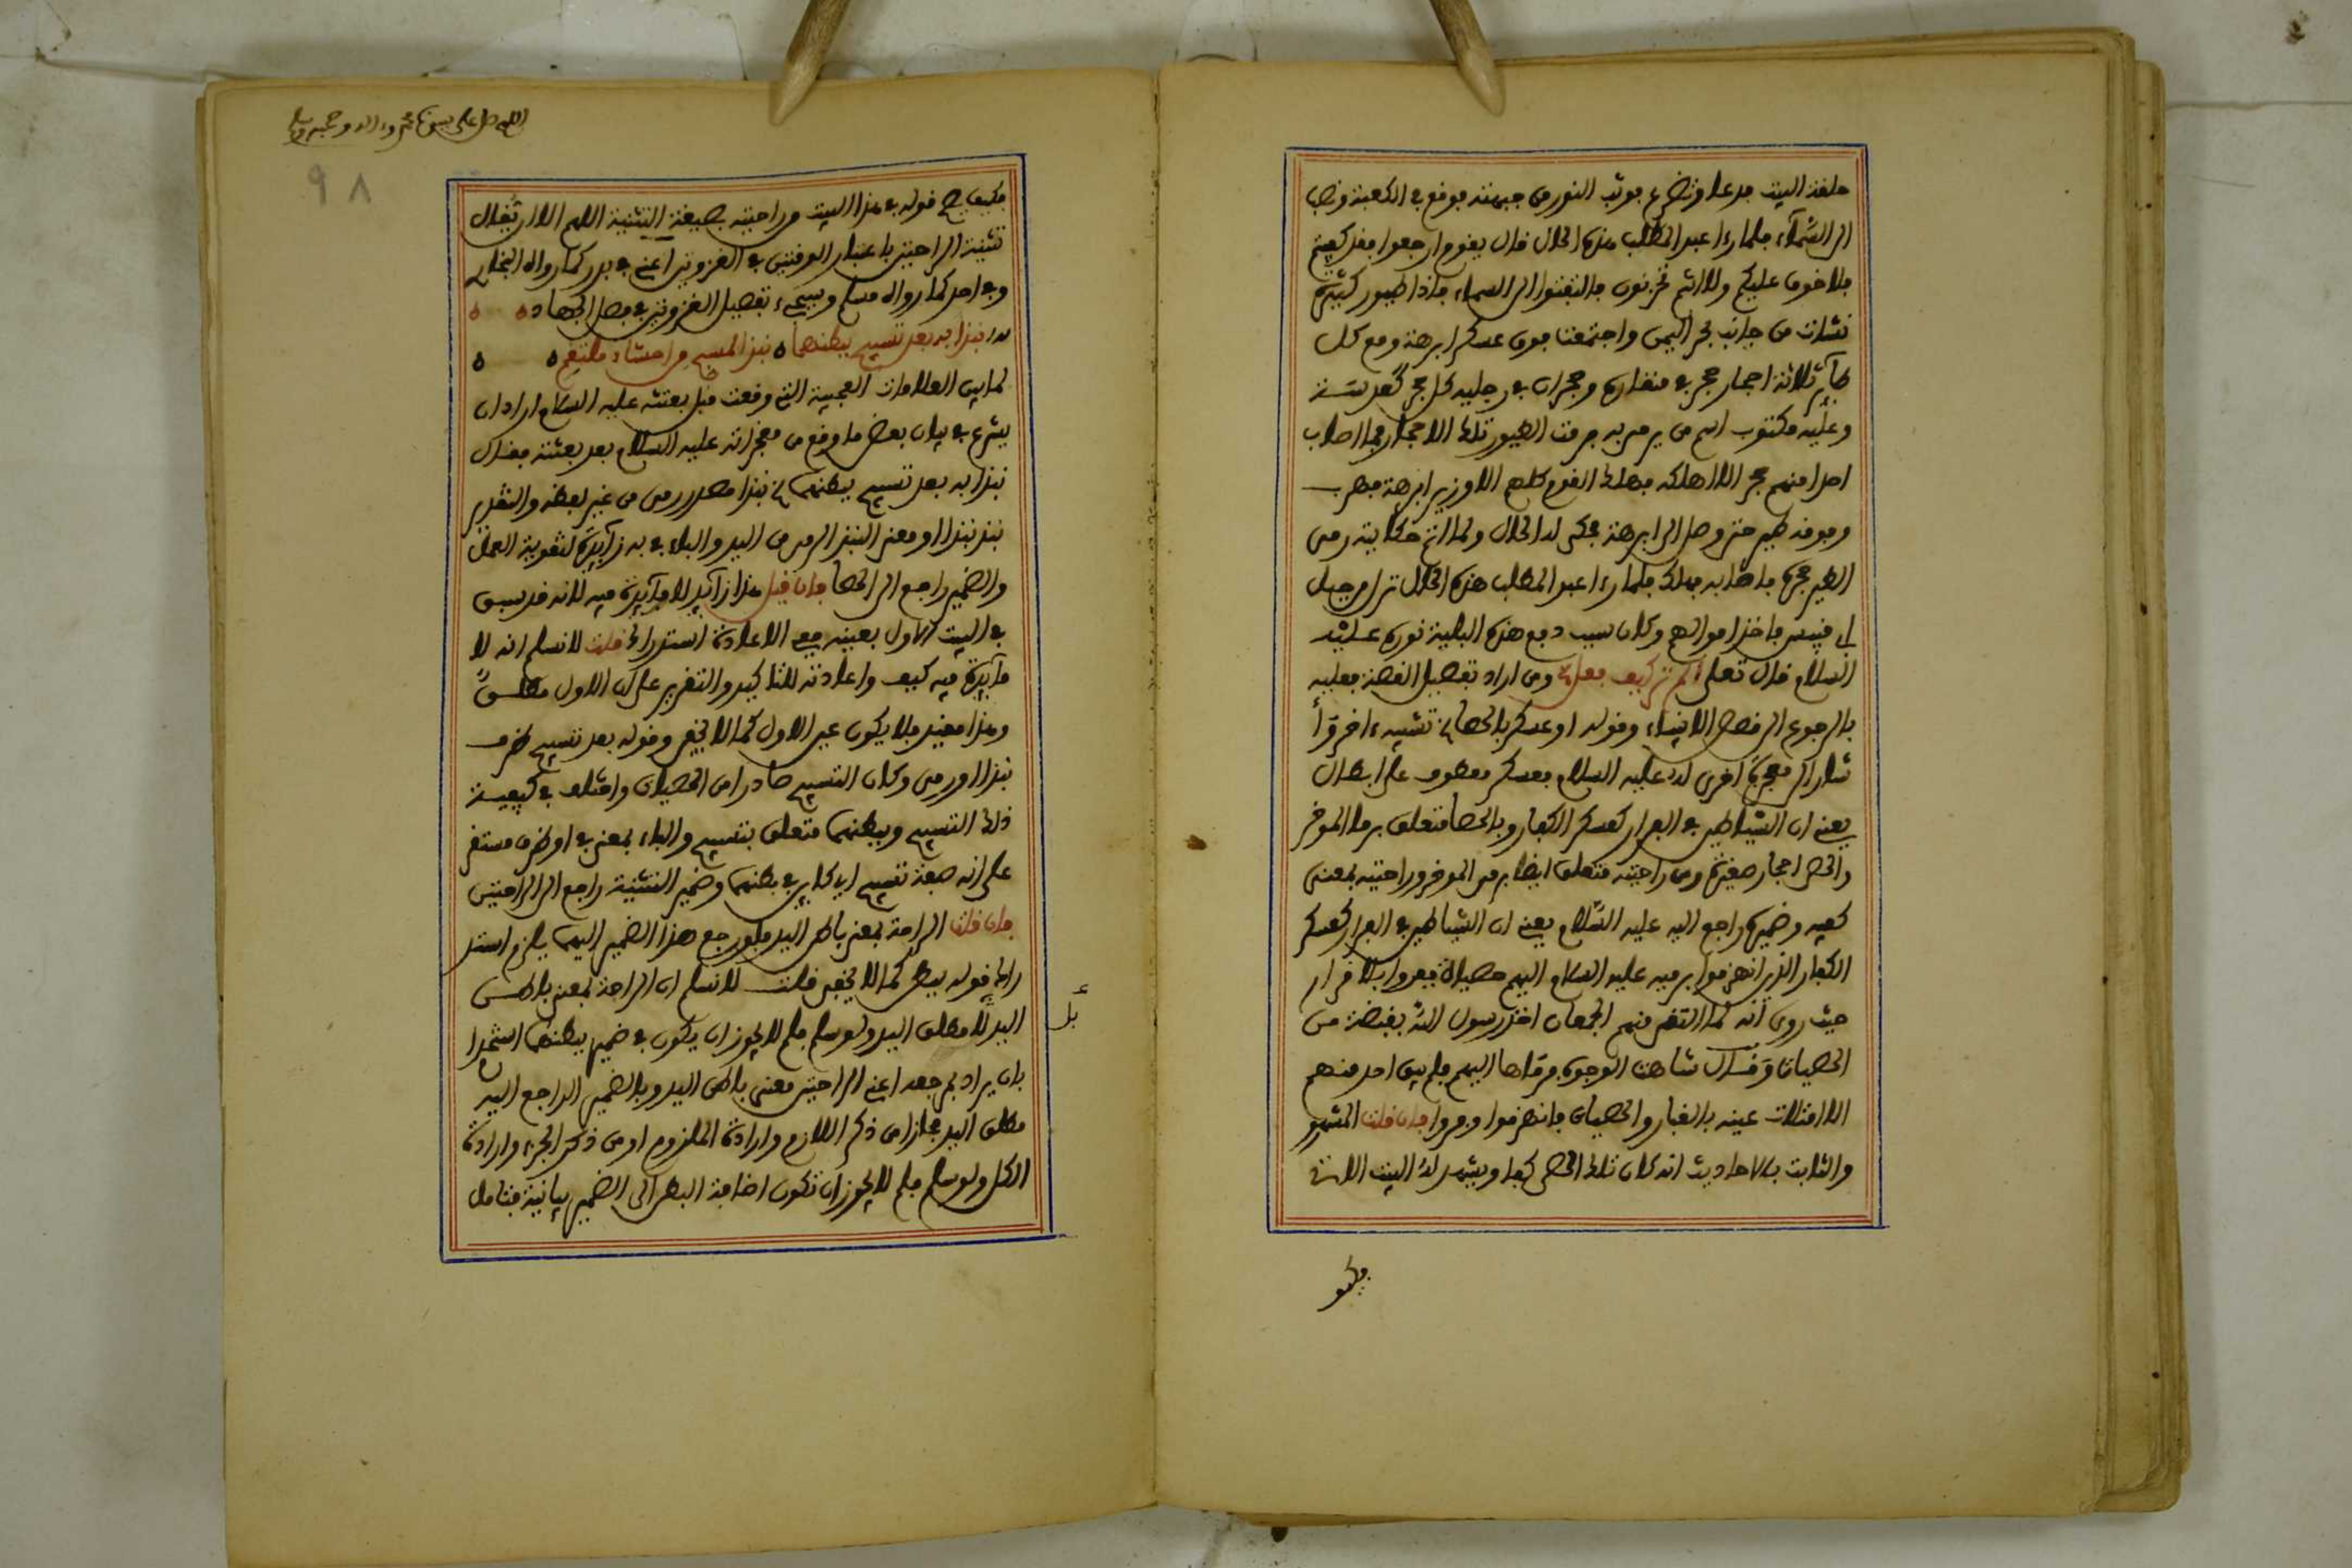 حلقة البيت فدعا وتضرع فوثب النور من جبهته فوقع في الكعبة وذهب
الى السمآء فلما رءا عبد المطلب هذه الحال قال يقوم ارجعوا فقد كفيتم
فلا خوف عليكم ولا انتم تحزنون فالتفتوا الى السماء فاذا طيور كثيرة
نشات من جانب بحر اليمن واجتمعت فوق عسكر ابرهة ومع كل
طآئر ثلاثة احجار حجر في منقاره وحجران في رجليه كل حجر كعدسة
وعليه مكتوب اسم من يرمى به فرمت الطيور تلك الاحجار فما اصاب
احدا منهم حجر الا اهلكه فهلك القوم كلهم الا وزير ابرهة فهرب
وفوقه طير حتى وصل الى ابرهة فحكى له الحال ولما اتم حكايته رمى
الطير حجره فاصابه فهلك فلما رءا عبد المطلب هذه الحال نزل من جبل
ابى قبيس فاخذ اموالهم وكان سبب دفع هذه البلية نوره عليه
السلام قال تعلى الم تر كيف فعل ومن اراد تفصيل القصة فعليه
بالرجوع الى قصص الانبياء وقوله او عسكر بالحصا تشبيه ءاخر
اشار الى معجزة اخرى له عليه السلام فعسكر معطوف على ابطال
يعني ان الشياطين في الفرار كعسكر الكفار وبالحصا متعلق برما الموخر
والحصا احجار صغيرة ومن راحتيه متعلق ايضا برمى الموخر وراحتيه بمعنى
كفيه وضميره راجع اليه عليه السلام يعني ان الشياطين في الفرار كعسكر
الكفار الذين انهزموا برميه عليه السلام اليهم حصيات ففروا بلا قرار
حيث روي انه لما التقى منهم الجمعان اخذ رسول الله بقبضة من
الحصيات وقال شاهت الوجوه فرماها اليهم فلم يبق احد منهم
الا امتلات عينه بالغبار والحصيات فانهزموا وفروا فان قلت المشهور
والثابت بالاحاديث انه كان تلك الحصى كفا ويشهد له البيت الاتى
فكيف
اللهم صل على سيدنا محمد وءاله وصحبه وسلم
٩٨
فكيف يصح قوله في هذا البيت من راحتيه بصيغة التثنية اللهم الا ان يقال
تثنية الراحتين باعتبار الوقتين في الغزوتين اعني في بدر كما رواه البخاري
وفي احد كما رواه مسلم وسيجيء تفصيل الغزوتين في فصل الجهاد
نبذا به بعد تسبيح ببطنهما نبذ المسبح من احشاء ملتقم
لما بين العلامات العجيبة التى وقعت قبل بعثته عليه السلام اراد ان
يشرع في بيان بعض ما وقع من معجزاته عليه السلام بعد بعثته فقال
نبذا به بعد تسبيح ببطنهما نبذا مصدر رمى من غير لفظه والتقدير
نبذ نبذا او معنى النبذ الرمى من اليد والباء في به زآئدة لتقوية العمل
والضمير راجع الى الحصا فان قيل هذا زآئد لا فآئدة فيه لانه قد سبق
في البيت الاول بعينه فمع الاعادة استدراك قلت لا نسلم انه لا
فآئدة فيه كيف واعادته للتاكيد والتقرير على ان الاول مطلق
وهذا مقيد فلا يكون عين الاول كما لا يخفى وقوله بعد تسبيح ظرف
نبذا او رمى وكان التسبيح صادرا من الحصيات واختلف في كيفية
ذلك التسبيح وببطنهما متعلق بتسبيح والباء بمعنى في او ظرف مستقر
على انه صفة تسبيح اي كاين في بطنهما وضمير التثنية راجع الى الراحتين
فان قلت الراحة بمعنى باطن اليد فلو رجع هذا الضمير اليهما يلزم استد
راك قوله ببطن كما لا يخفى قلت لا نسلم ان الراحة بمعنى باطن
اليد بل مطلق اليد ولو سلم فلم لا يجوز ان يكون في ضمير ببطنهما استخدام
بان يراد بمرجعه اعني الراحتين معنى باطن اليد وبالضمير الراجع اليه
مطلق اليد مجازا من ذكر اللازم وارادة الملزوم او من ذكر الجزء وارادة
الكل ولو سلم فلم لا يجوز ان تكون اضافة البطن الى الضمير بيانية فتامل
بل